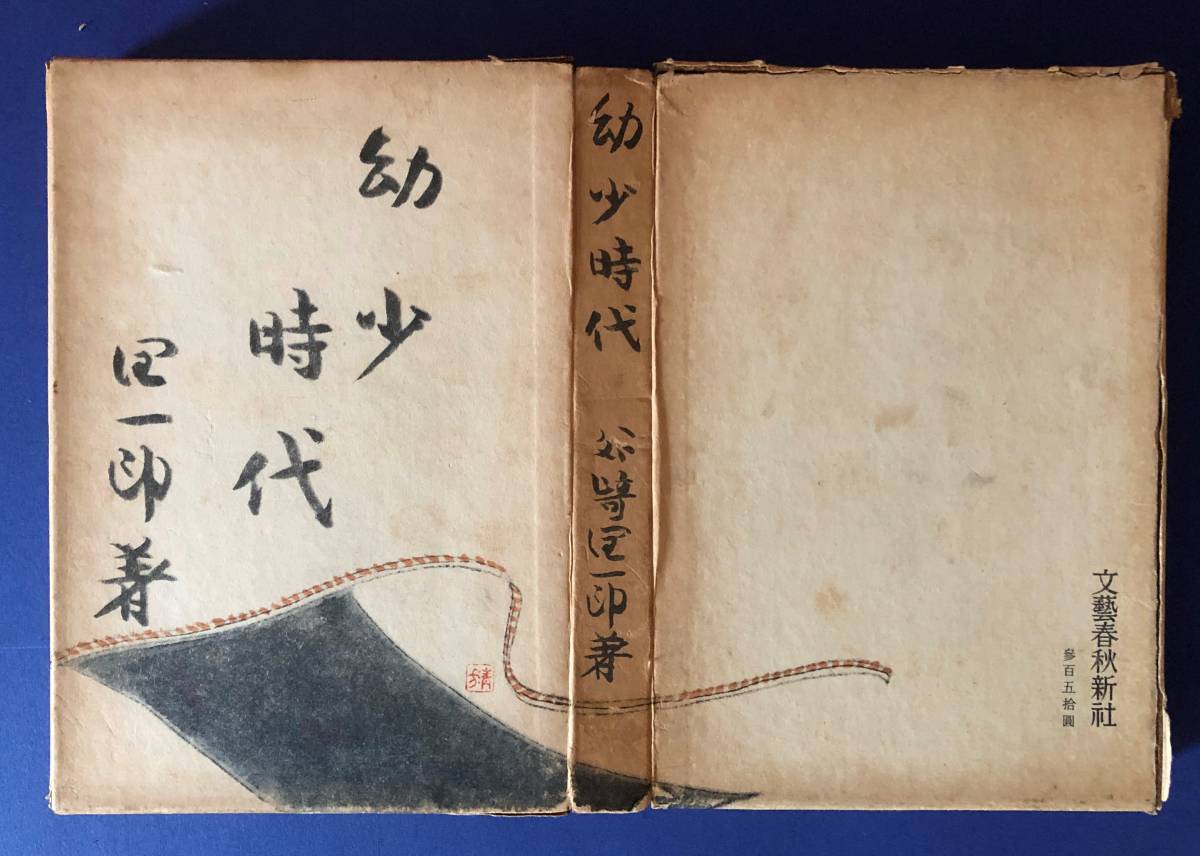 幼少
時代
潤一郎著
幼少時代 谷崎潤一郎著
文藝春秋新社
參百五拾圓